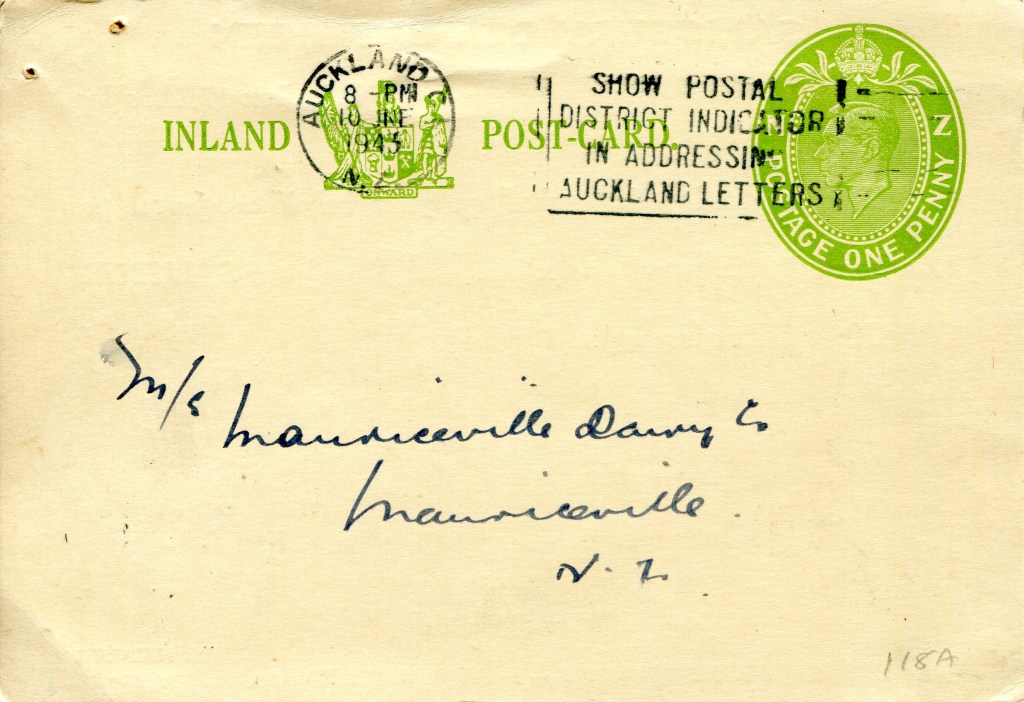 AUCKLAND
8 - PM
10 JNE
1943
N.Z.
SHOW POSTAL
DISTRICT INDICATOR
IN ADDRESSING
AUCKLAND LETTERS
INLAND POST-CARD.
ONWARD
N Z
POSTAGE ONE PENNY
M/s
Mauriceville Dairy Co
Mauriceville.
N. Z.
118A